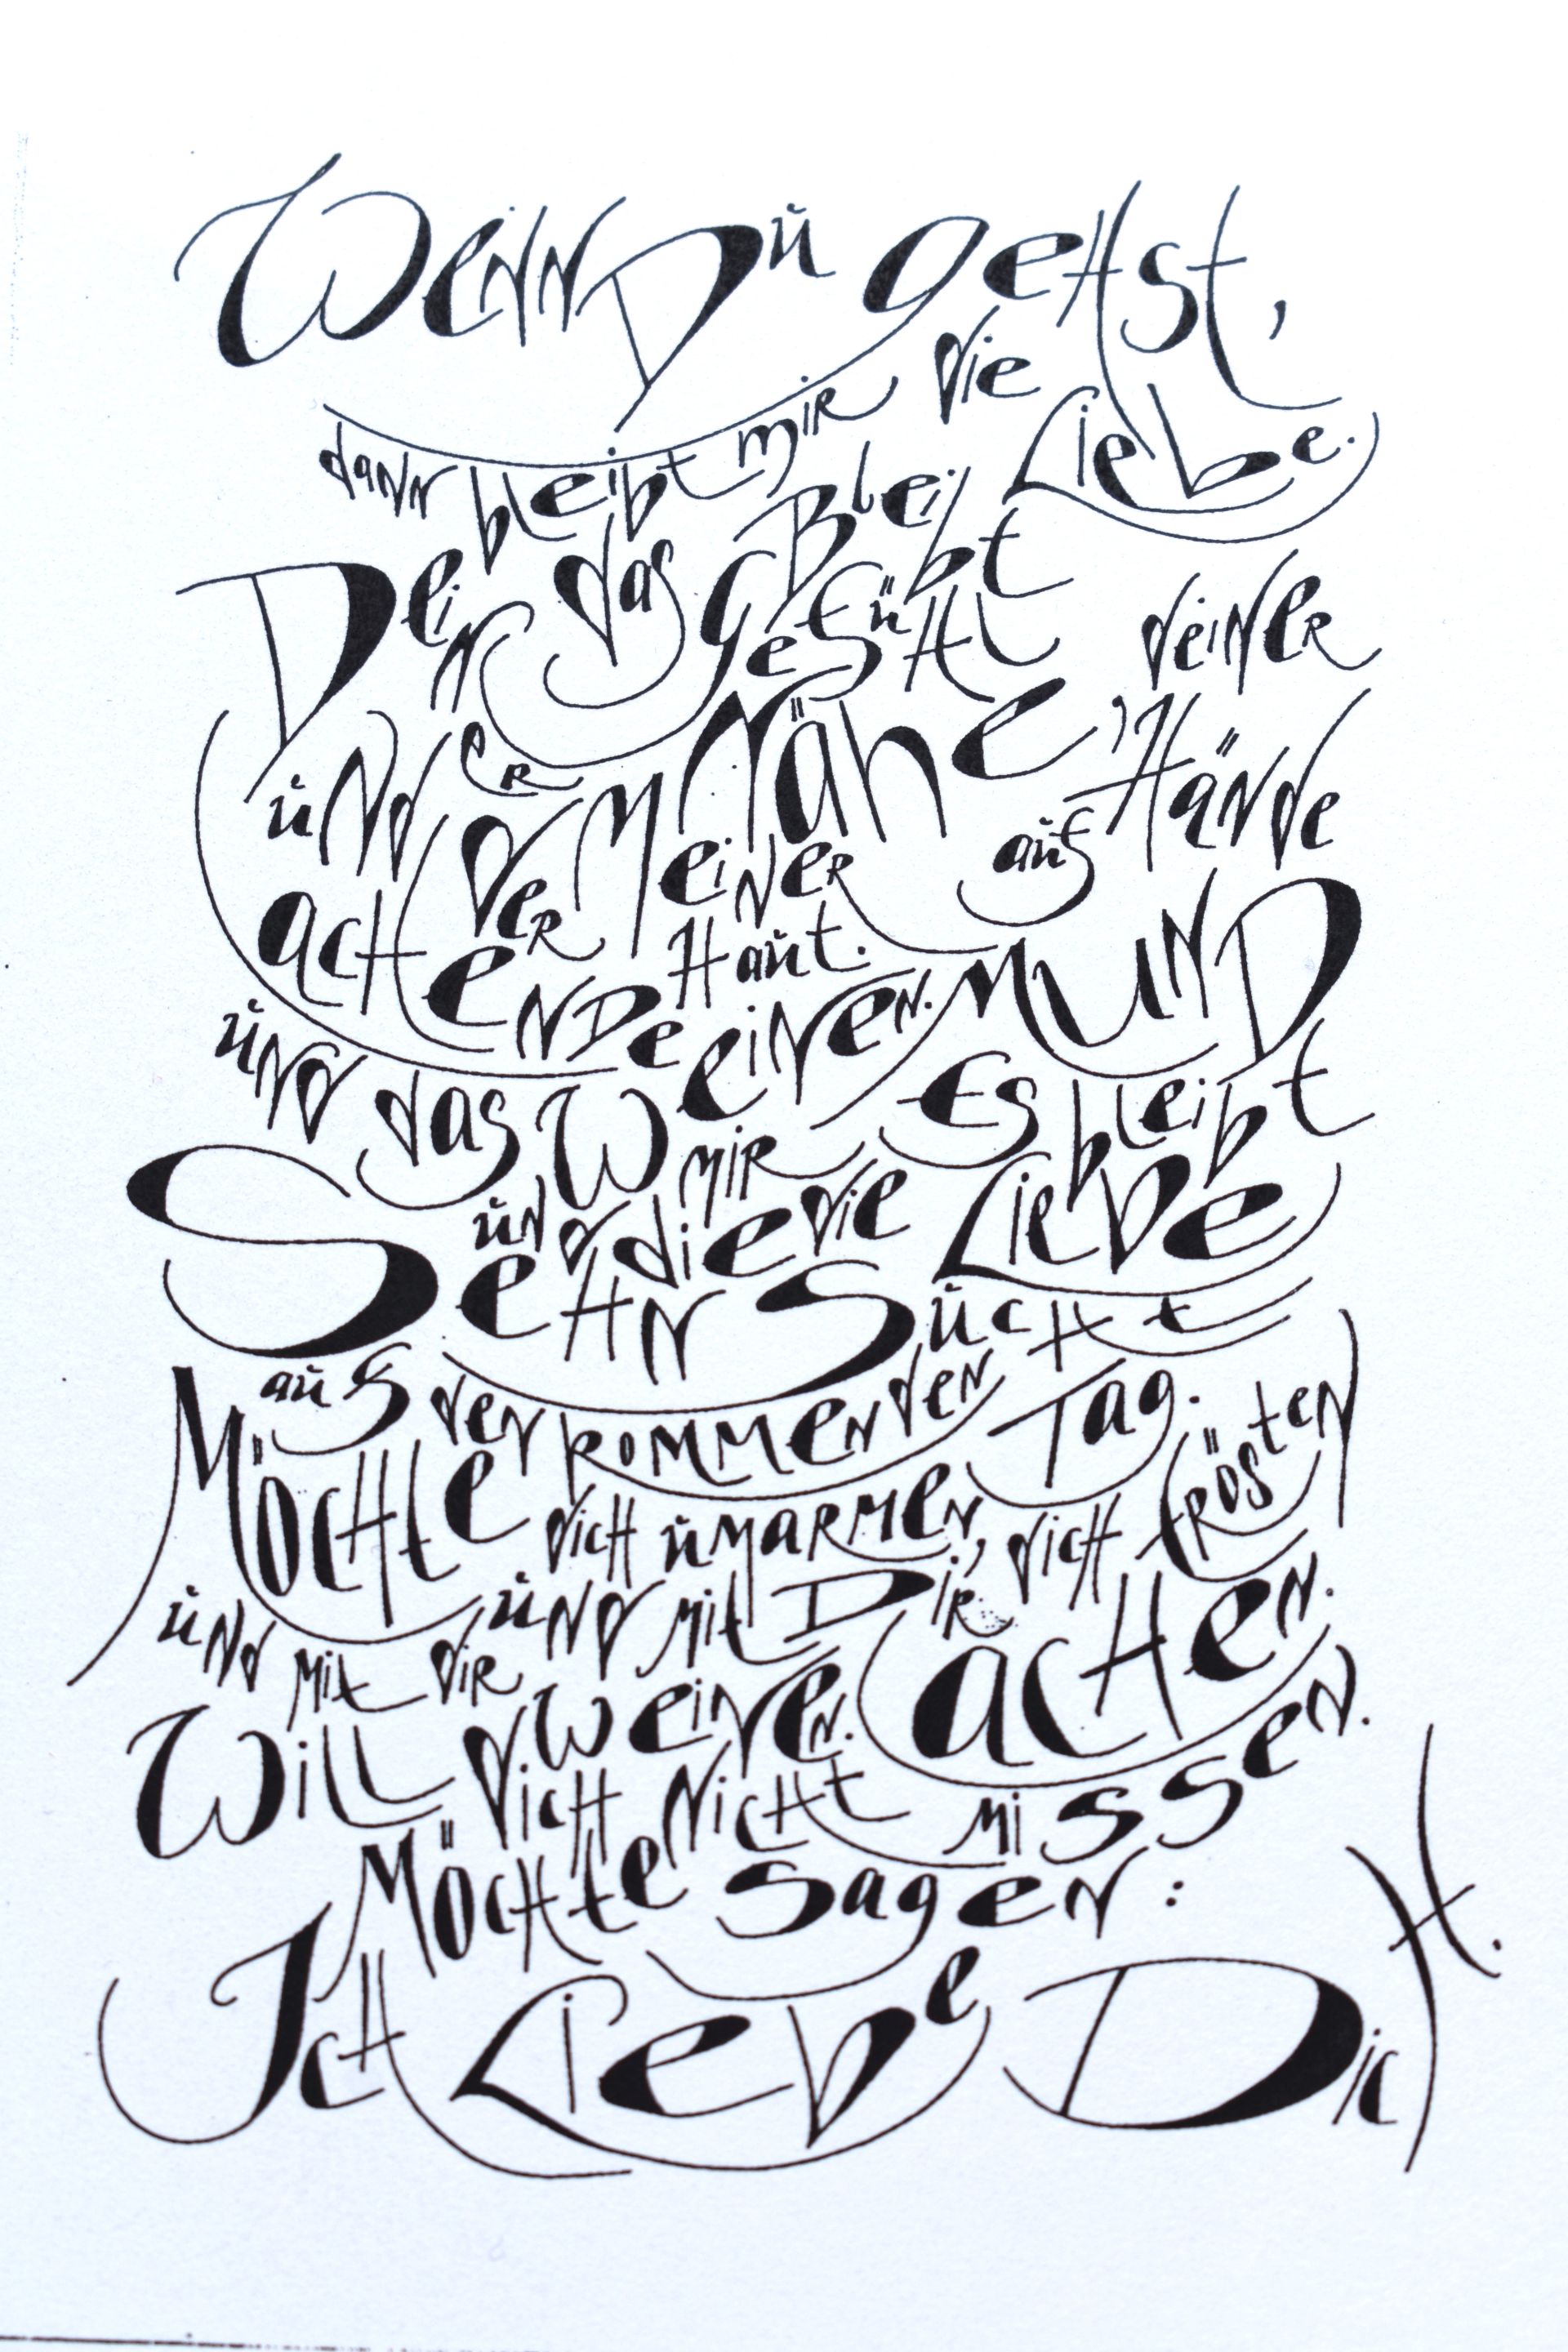 Wenn Du gehst,
dann bleibt mir die Liebe.
Bleibt das Gefühl
Deiner Nähe, deiner Hände
auf meiner Haut.
und der lachende Mund
und das Weinen.
Es bleibt mir die Liebe
und die Sehnsucht
auf den kommenden Tag.
Möchte dich umarmen, dich trösten
und mit dir weinen.
und mit Dir lachen.
Will dich nicht missen.
Möchte sagen:
Ich Liebe Dich
H.